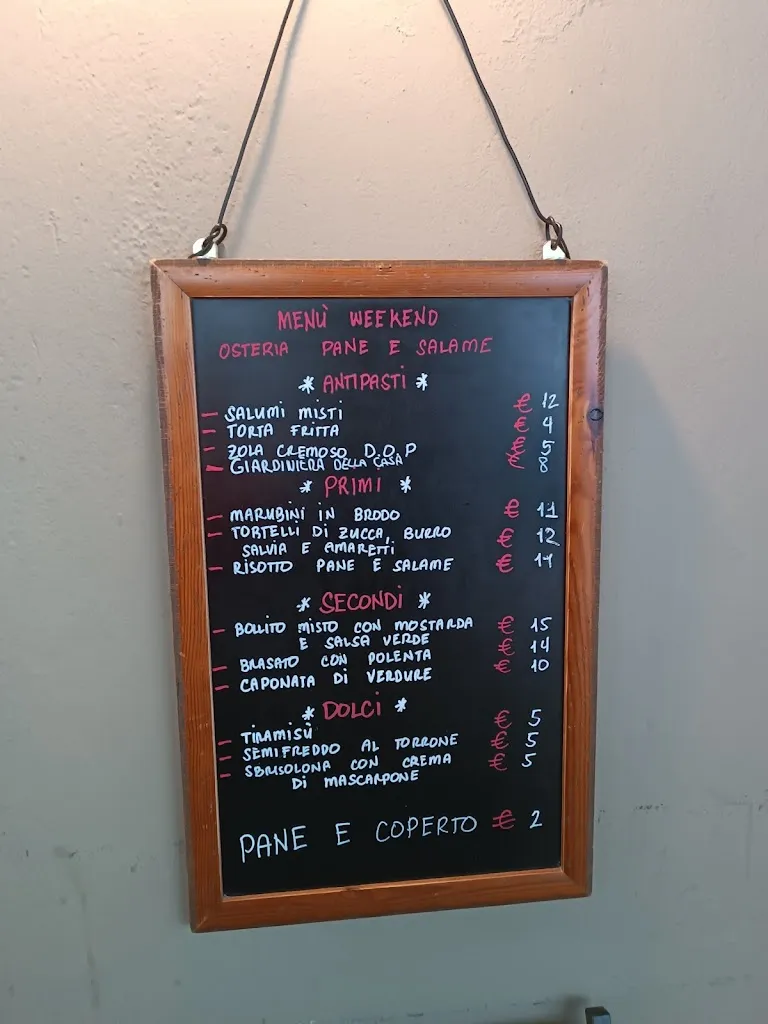 MENÙ WEEKEND
OSTERIA PANE E SALAME
* ANTIPASTI *
- SALUMI MISTI € 12
- TORTA FRITTA € 4
- ZOLA CREMOSO D.O.P € 5
- GIARDINIERA DELLA CASA € 8
* PRIMI *
- MARUBINI IN BRODO € 11
- TORTELLI DI ZUCCA, BURRO € 12
SALVIA E AMARETTI
- RISOTTO PANE E SALAME € 14
* SECONDI *
- BOLLITO MISTO CON MOSTARDA € 15
E SALSA VERDE
- BRASATO CON POLENTA € 14
- CAPONATA DI VERDURE € 10
* DOLCI *
- TIRAMISÙ € 5
- SEMIFREDDO AL TORRONE € 5
- SBRISOLONA CON CREMA € 5
DI MASCARPONE
PANE E COPERTO € 2